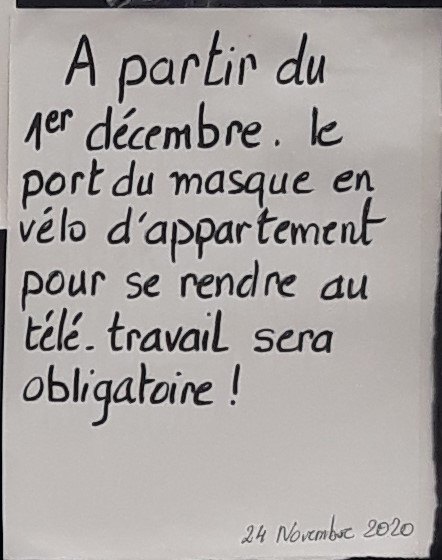 A partir du
1er décembre. le
port du masque en
vélo d'appartement
pour se rendre au
télé. travail sera
obligatoire !
24 Novembre 2020